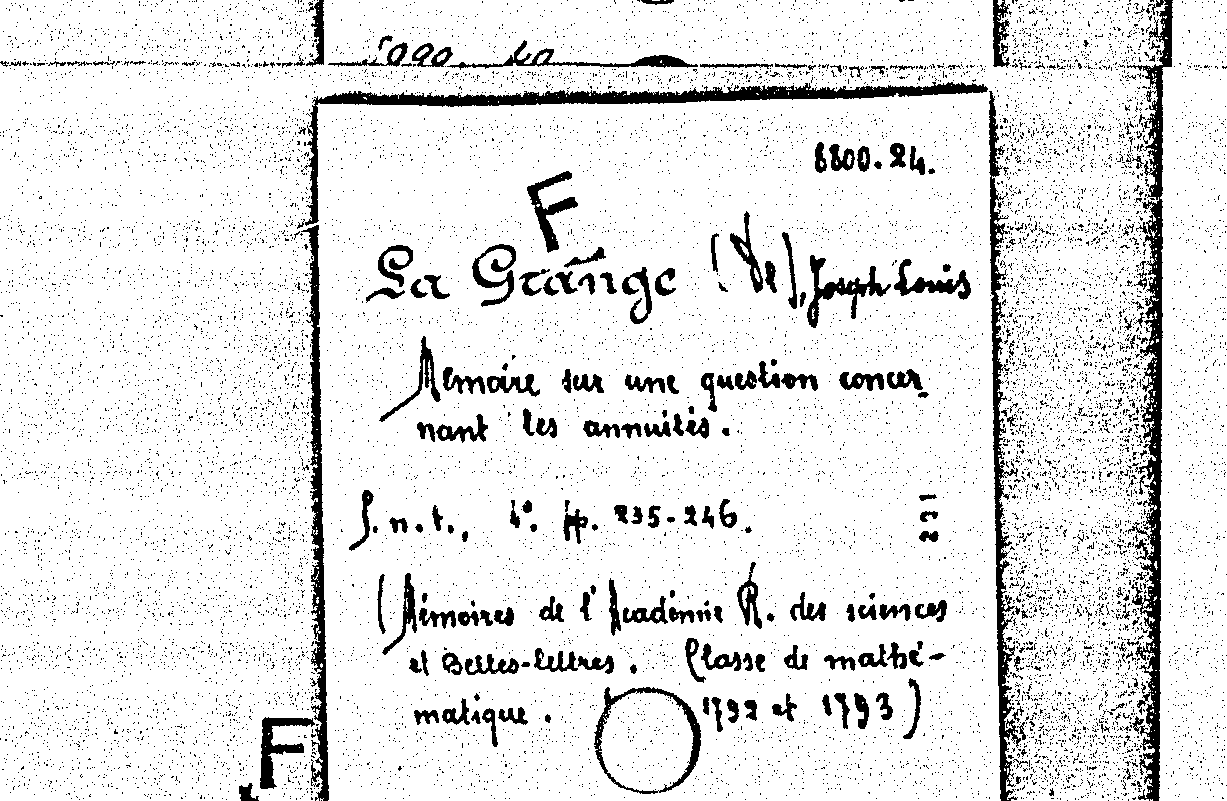 8800.24.
F
La Grange (de), Joseph Louis
Mémoire sur une question concer-
nant les annuités.
S.n.t., 4°. pp. 235-246.
(Mémoires de l'Académie R. des sciences
et Belles-lettres. Classe de mathé-
matique. 1792 et 1793)
F